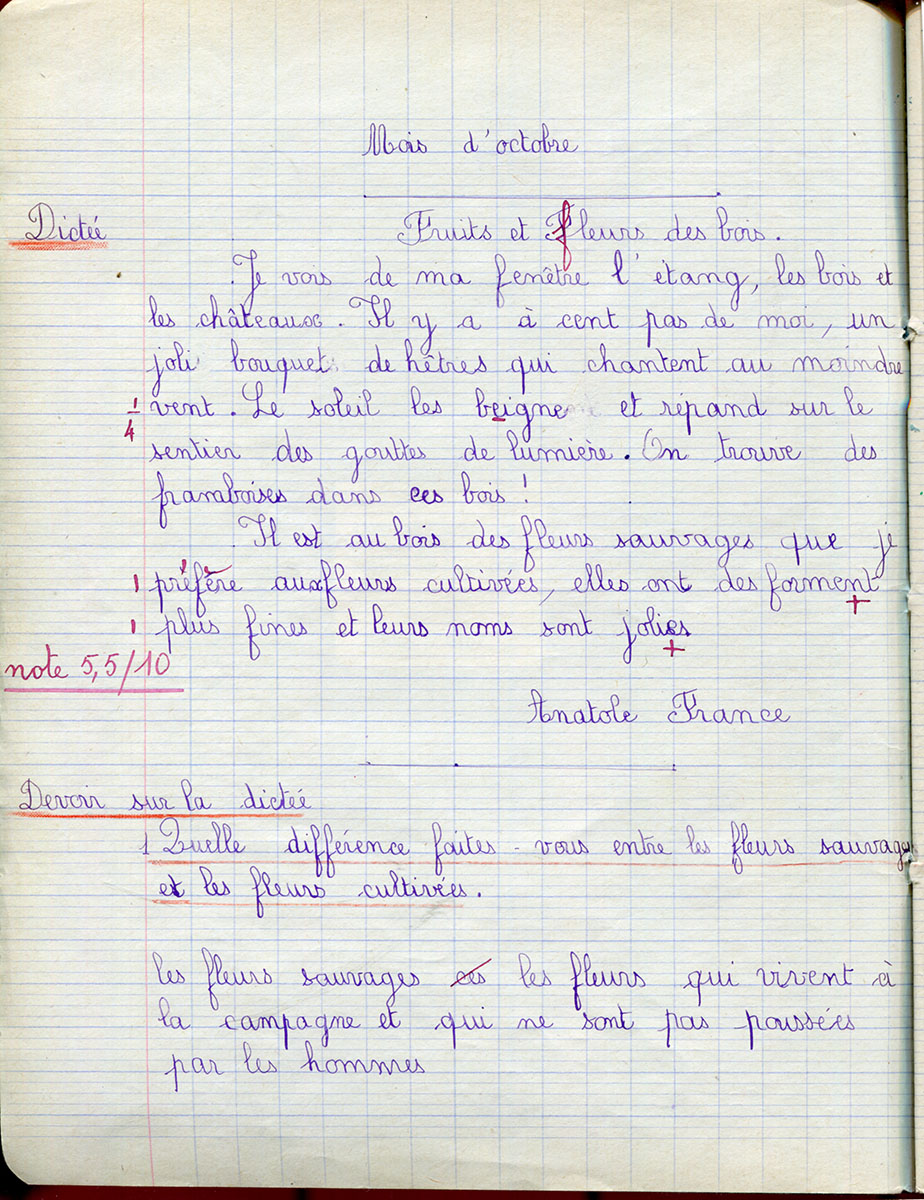 Mois d'octobre
Dictée
Fruits et fleurs des bois.
Je vois de ma fenêtre l'étang, les bois et
les châteaux. Il y a à cent pas de moi, un
joli bouquet de hêtres qui chantent au moindre
1/4 vent. Le soleil les beigne et répand sur le
sentier des gouttes de lumière. On trouve des
framboises dans ces bois !
Il est au bois des fleurs sauvages que je
1 préfère aux fleurs cultivées, elles ont des forment
+
1 plus fines et leurs noms sont jolies
+
note 5,5/10
Anatole France
Devoir sur la dictée
1 Quelle différence faites-vous entre les fleurs sauvages
et les fleurs cultivées.
les fleurs sauvages les fleurs qui vivent à
la campagne et qui ne sont pas poussées
par les hommes